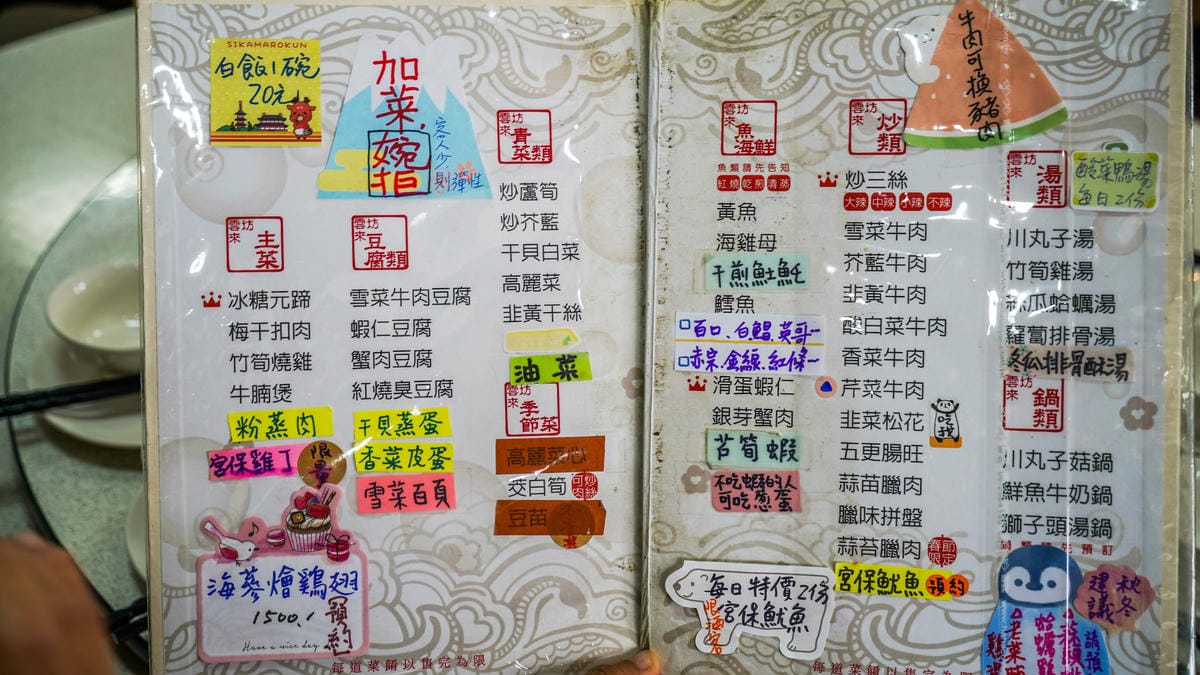 SIKAMAROKUN
白飯1碗
20元
加菜.
婉拒
客人少
則彈性
雲坊來 主菜
冰糖元蹄
梅干扣肉
竹筍燒雞
牛腩煲
粉蒸肉
宮保雞丁
限量
海蔘燴鷄翅
1500.
預約
Have a nice day
雲坊來 豆腐類
雪菜牛肉豆腐
蝦仁豆腐
蟹肉豆腐
紅燒臭豆腐
干貝蒸蛋
香菜皮蛋
雪菜百頁
雲坊來 青菜類
炒蘆筍
炒芥藍
干貝白菜
高麗菜
韭黃干絲
油菜
雲坊來 季節菜
高麗菜心
茭白筍 可炒肉絲
豆苗
每道菜餚以售完為限
雲坊來 魚海鮮
魚類請先告知
紅燒乾煎清蒸
黃魚
海雞母
干煎魚土魠
鱈魚
百口、白鯧、英哥
赤宗、金線、紅條
滑蛋蝦仁
銀芽蟹肉
苔筍蝦
不吃蝦的人
可吃蔥蛋
每日特價2份
宮保魷魚
限酒客
雲坊來 炒類
牛肉可換豬肉
炒三絲
大辣 中辣 小辣 不辣
雪菜牛肉
芥藍牛肉
韭黃牛肉
酸白菜牛肉
香菜牛肉
芹菜牛肉
韭菜松花
吃我
五更腸旺
蒜苗臘肉
臘味拼盤
蒜苔臘肉 春節限定
宮保魷魚 預約
每道菜餚以售完為限
雲坊來 湯類
酸菜鴨湯
每日2份
川丸子湯
竹筍雞湯
絲瓜蛤蠣湯
蘿蔔排骨湯
冬瓜排骨酥湯
雲坊來 鍋類
川丸子菇鍋
鮮魚牛奶鍋
獅子頭湯鍋
鍋類請先預訂
秋冬
建議